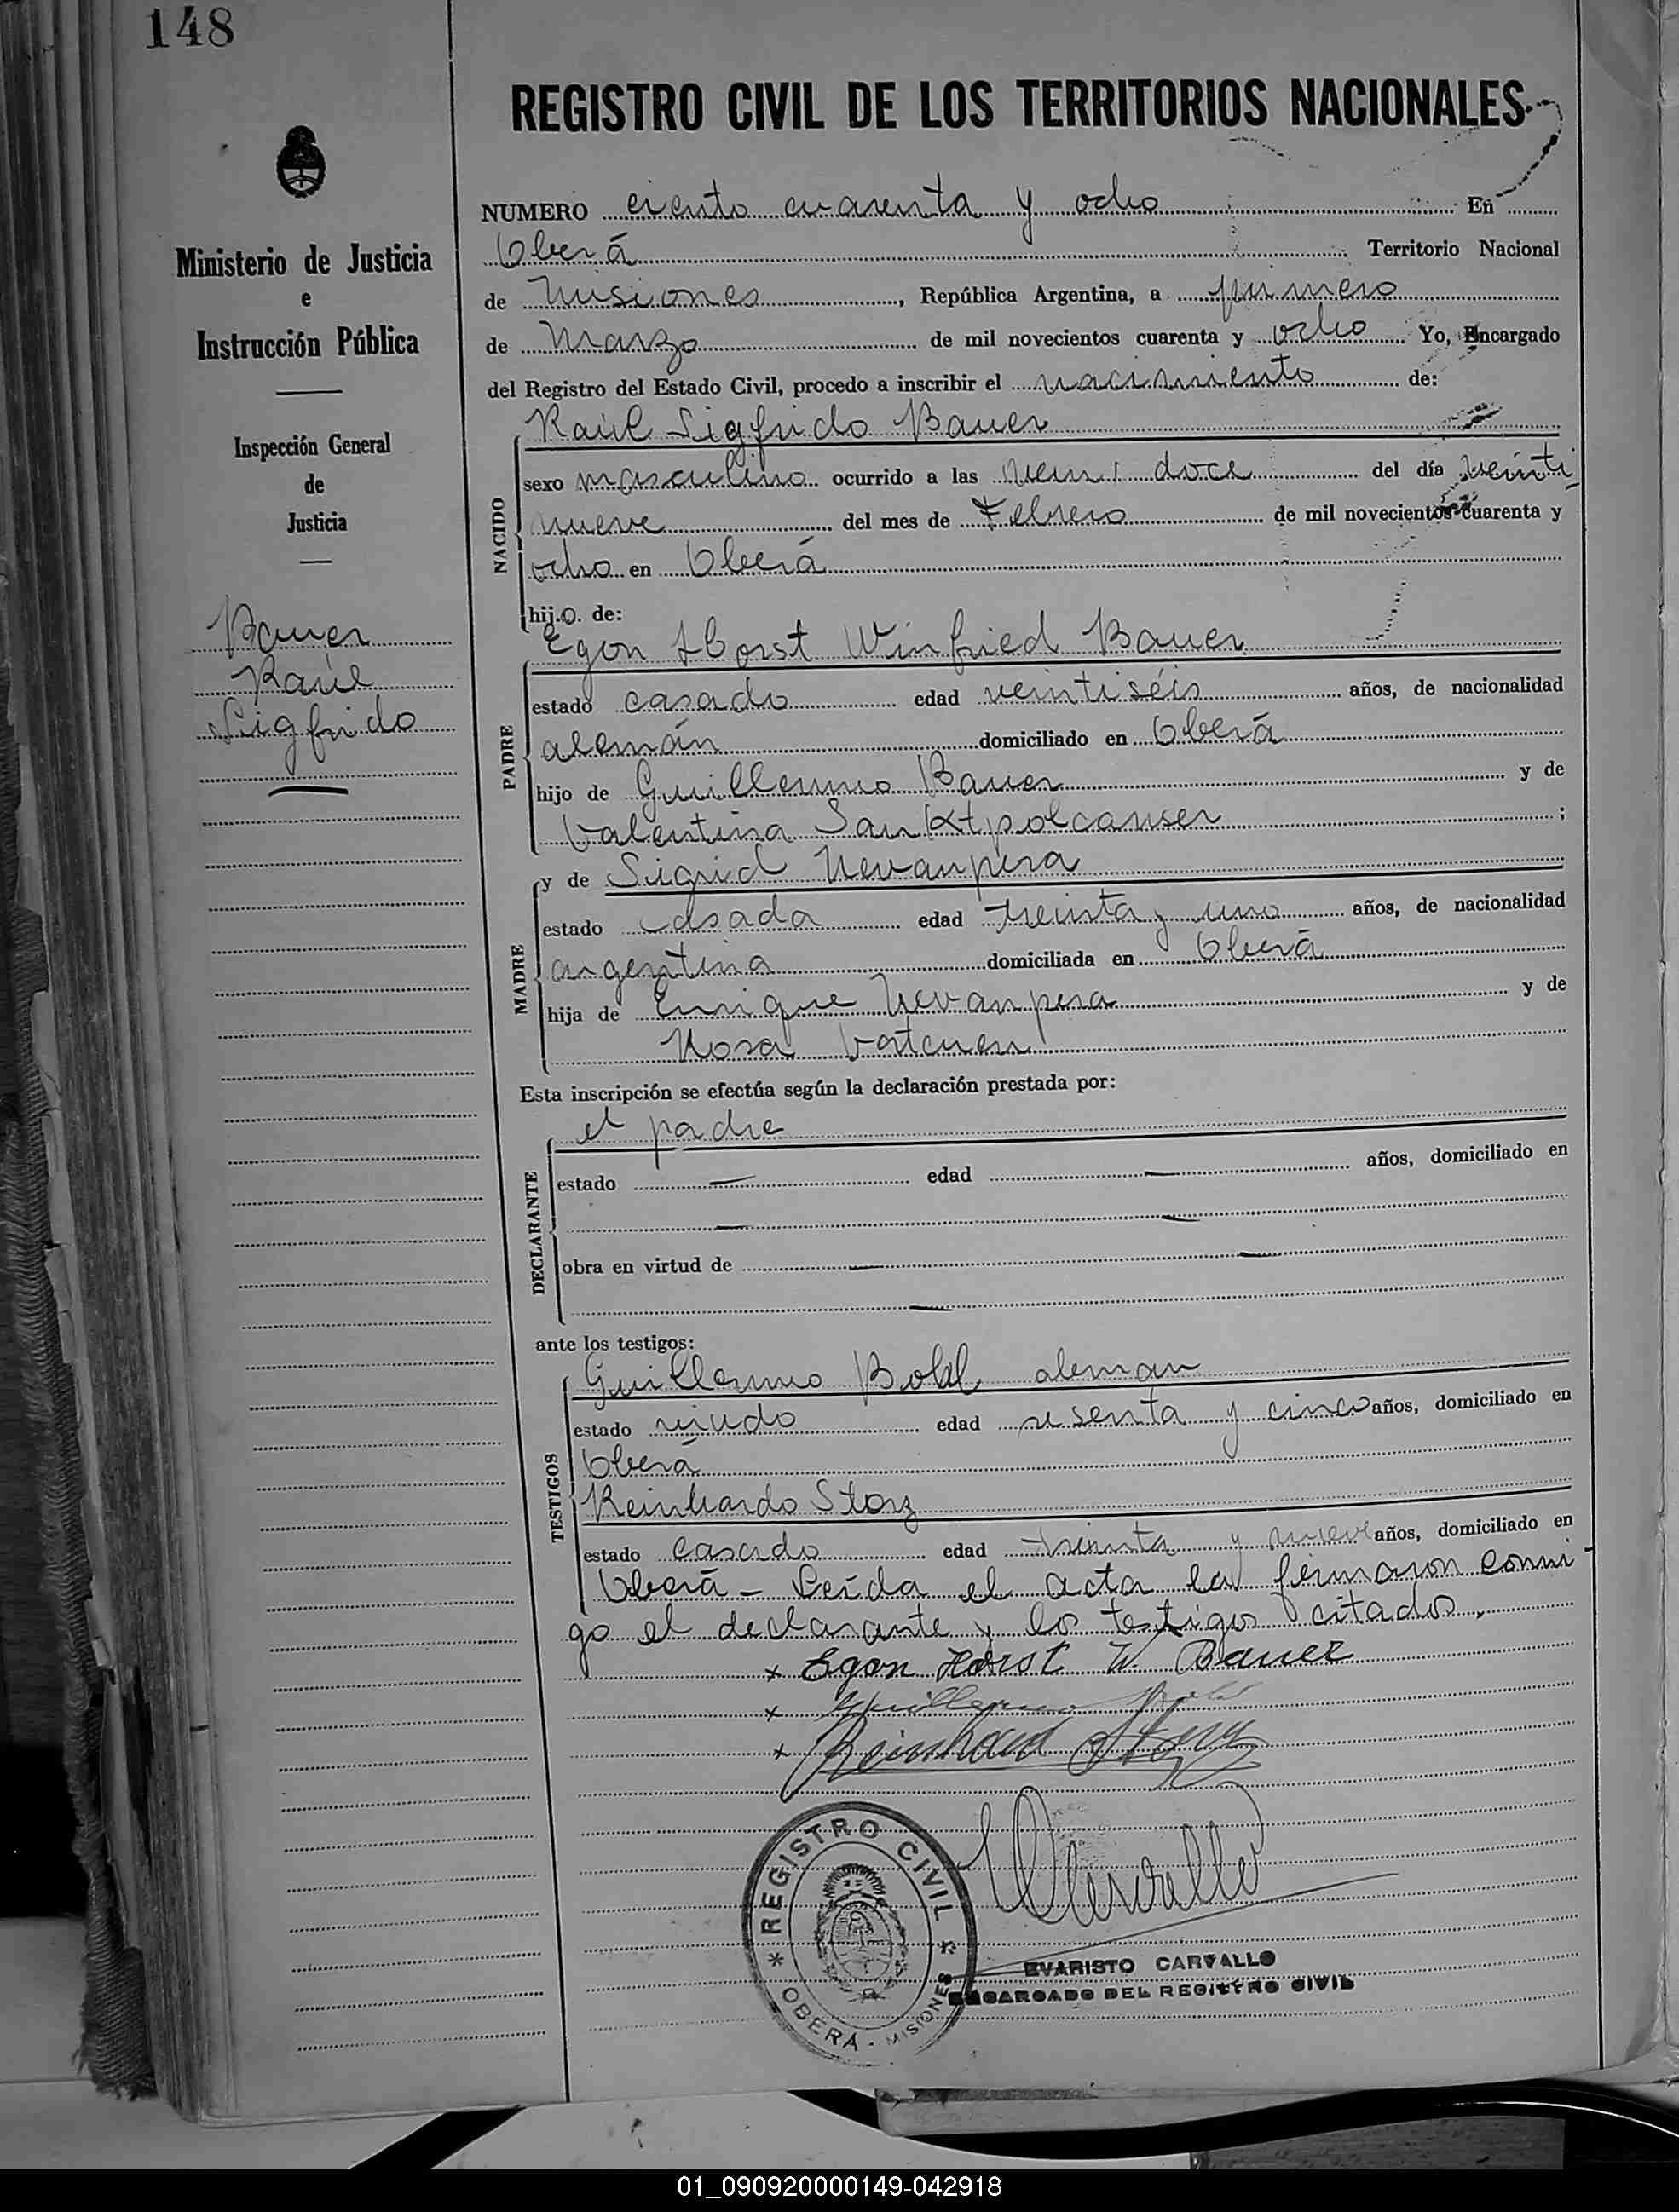 148
REGISTRO CIVIL DE LOS TERRITORIOS NACIONALES
Ministerio de Justicia
e
Instrucción Pública
Inspección General
de
Justicia
Bauer
Raúl
Sigfrido
NUMERO ciento cuarenta y ocho En
Oberá Territorio Nacional
de Misiones, República Argentina, a primero
de Marzo de mil novecientos cuarenta y ocho Yo, Encargado
del Registro del Estado Civil, procedo a inscribir el nacimiento de:
NACIDO
Raúl Sigfrido Bauer
sexo masculino ocurrido a las doce del día veinti
nueve del mes de Febrero de mil novecientos cuarenta y
ocho en Oberá
hijo. de:
PADRE
Egon Horst Winfried Bauer
estado casado edad veintiséis años, de nacionalidad
alemán domiciliado en Oberá
hijo de Guillermo Bauer y de
Valentina Sanktpolcanser ;
MADRE
y de Sigrid Nevanpera
estado casada edad treinta y uno años, de nacionalidad
argentina domiciliada en Oberá
hija de Enrique Nevanpera y de
Rosa
Esta inscripción se efectúa según la declaración prestada por:
DECLARANTE
el padre
estado — edad — años, domiciliado en
— —
obra en virtud de — —
—
ante los testigos:
TESTIGOS
Guillermo Bohl aleman
estado viudo edad sesenta y cinco años, domiciliado en
Oberá
Reinhardo Storz
estado casado edad treinta y nueve años, domiciliado en
Oberá - Leída el acta la firmaron conmi
go el declarante y los testigos citados.
x Egon Horst W. Bauer
x Guillermo
x Reinhard Storz
REGISTRO CIVIL
OBERÁ - MISIONES
EVARISTO CARVALLO
ENCARGADO DEL REGISTRO CIVIL
01_090920000149-042918